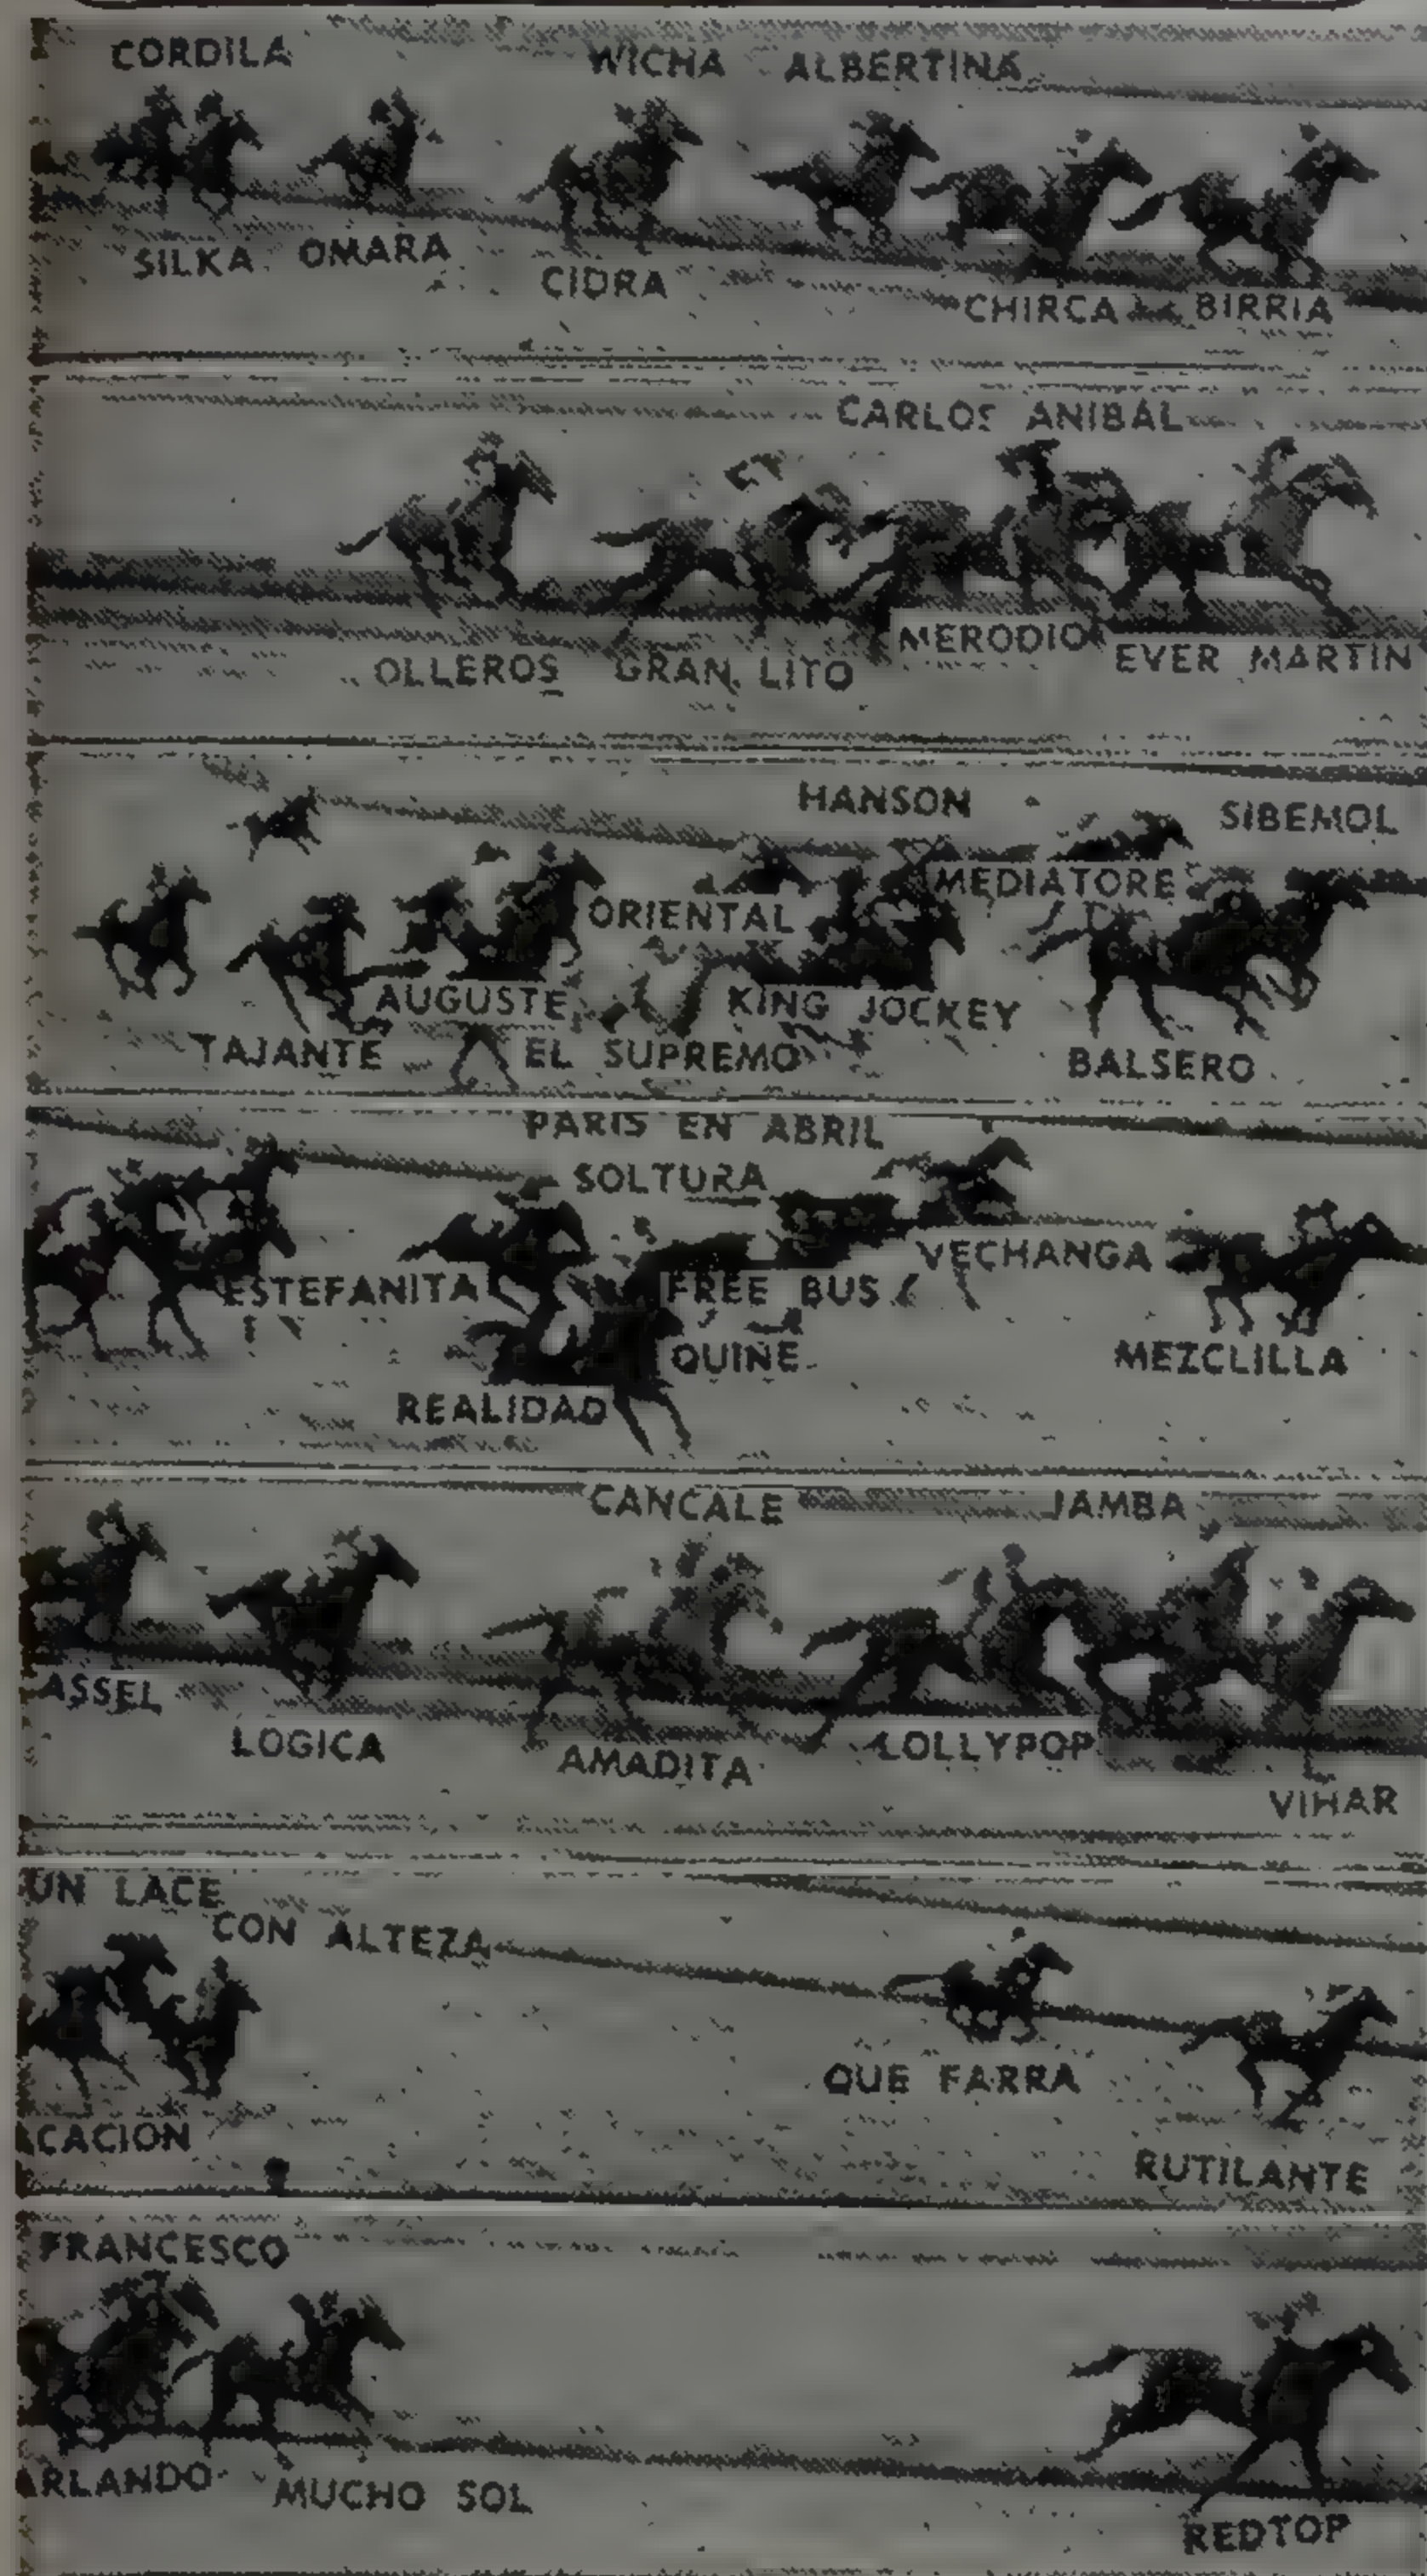 CORDILA
WICHA ALBERTINA
SILKA OMARA
CIDRA
CHIRCA BIRRIA
CARLOS ANIBAL
MERODIO
EVER MARTIN
OLLEROS GRAN LITO
HANSON
SIBEMOL
MEDIATORE
ORIENTAL
AUGUSTE
KING JOCKEY
TAJANTE
EL SUPREMO
BALSERO
PARIS EN ABRIL
SOLTURA
VECHANGA
ESTEFANITA
FREE BUS
QUINE
MEZCLILLA
REALIDAD
CANCALE
JAMBA
ASSEL
LOGICA
AMADITA
LOLLYPOP
VIHAR
UN LACE
CON ALTEZA
QUE FARRA
CACION
RUTILANTE
FRANCESCO
ARLANDO
MUCHO SOL
REDTOP